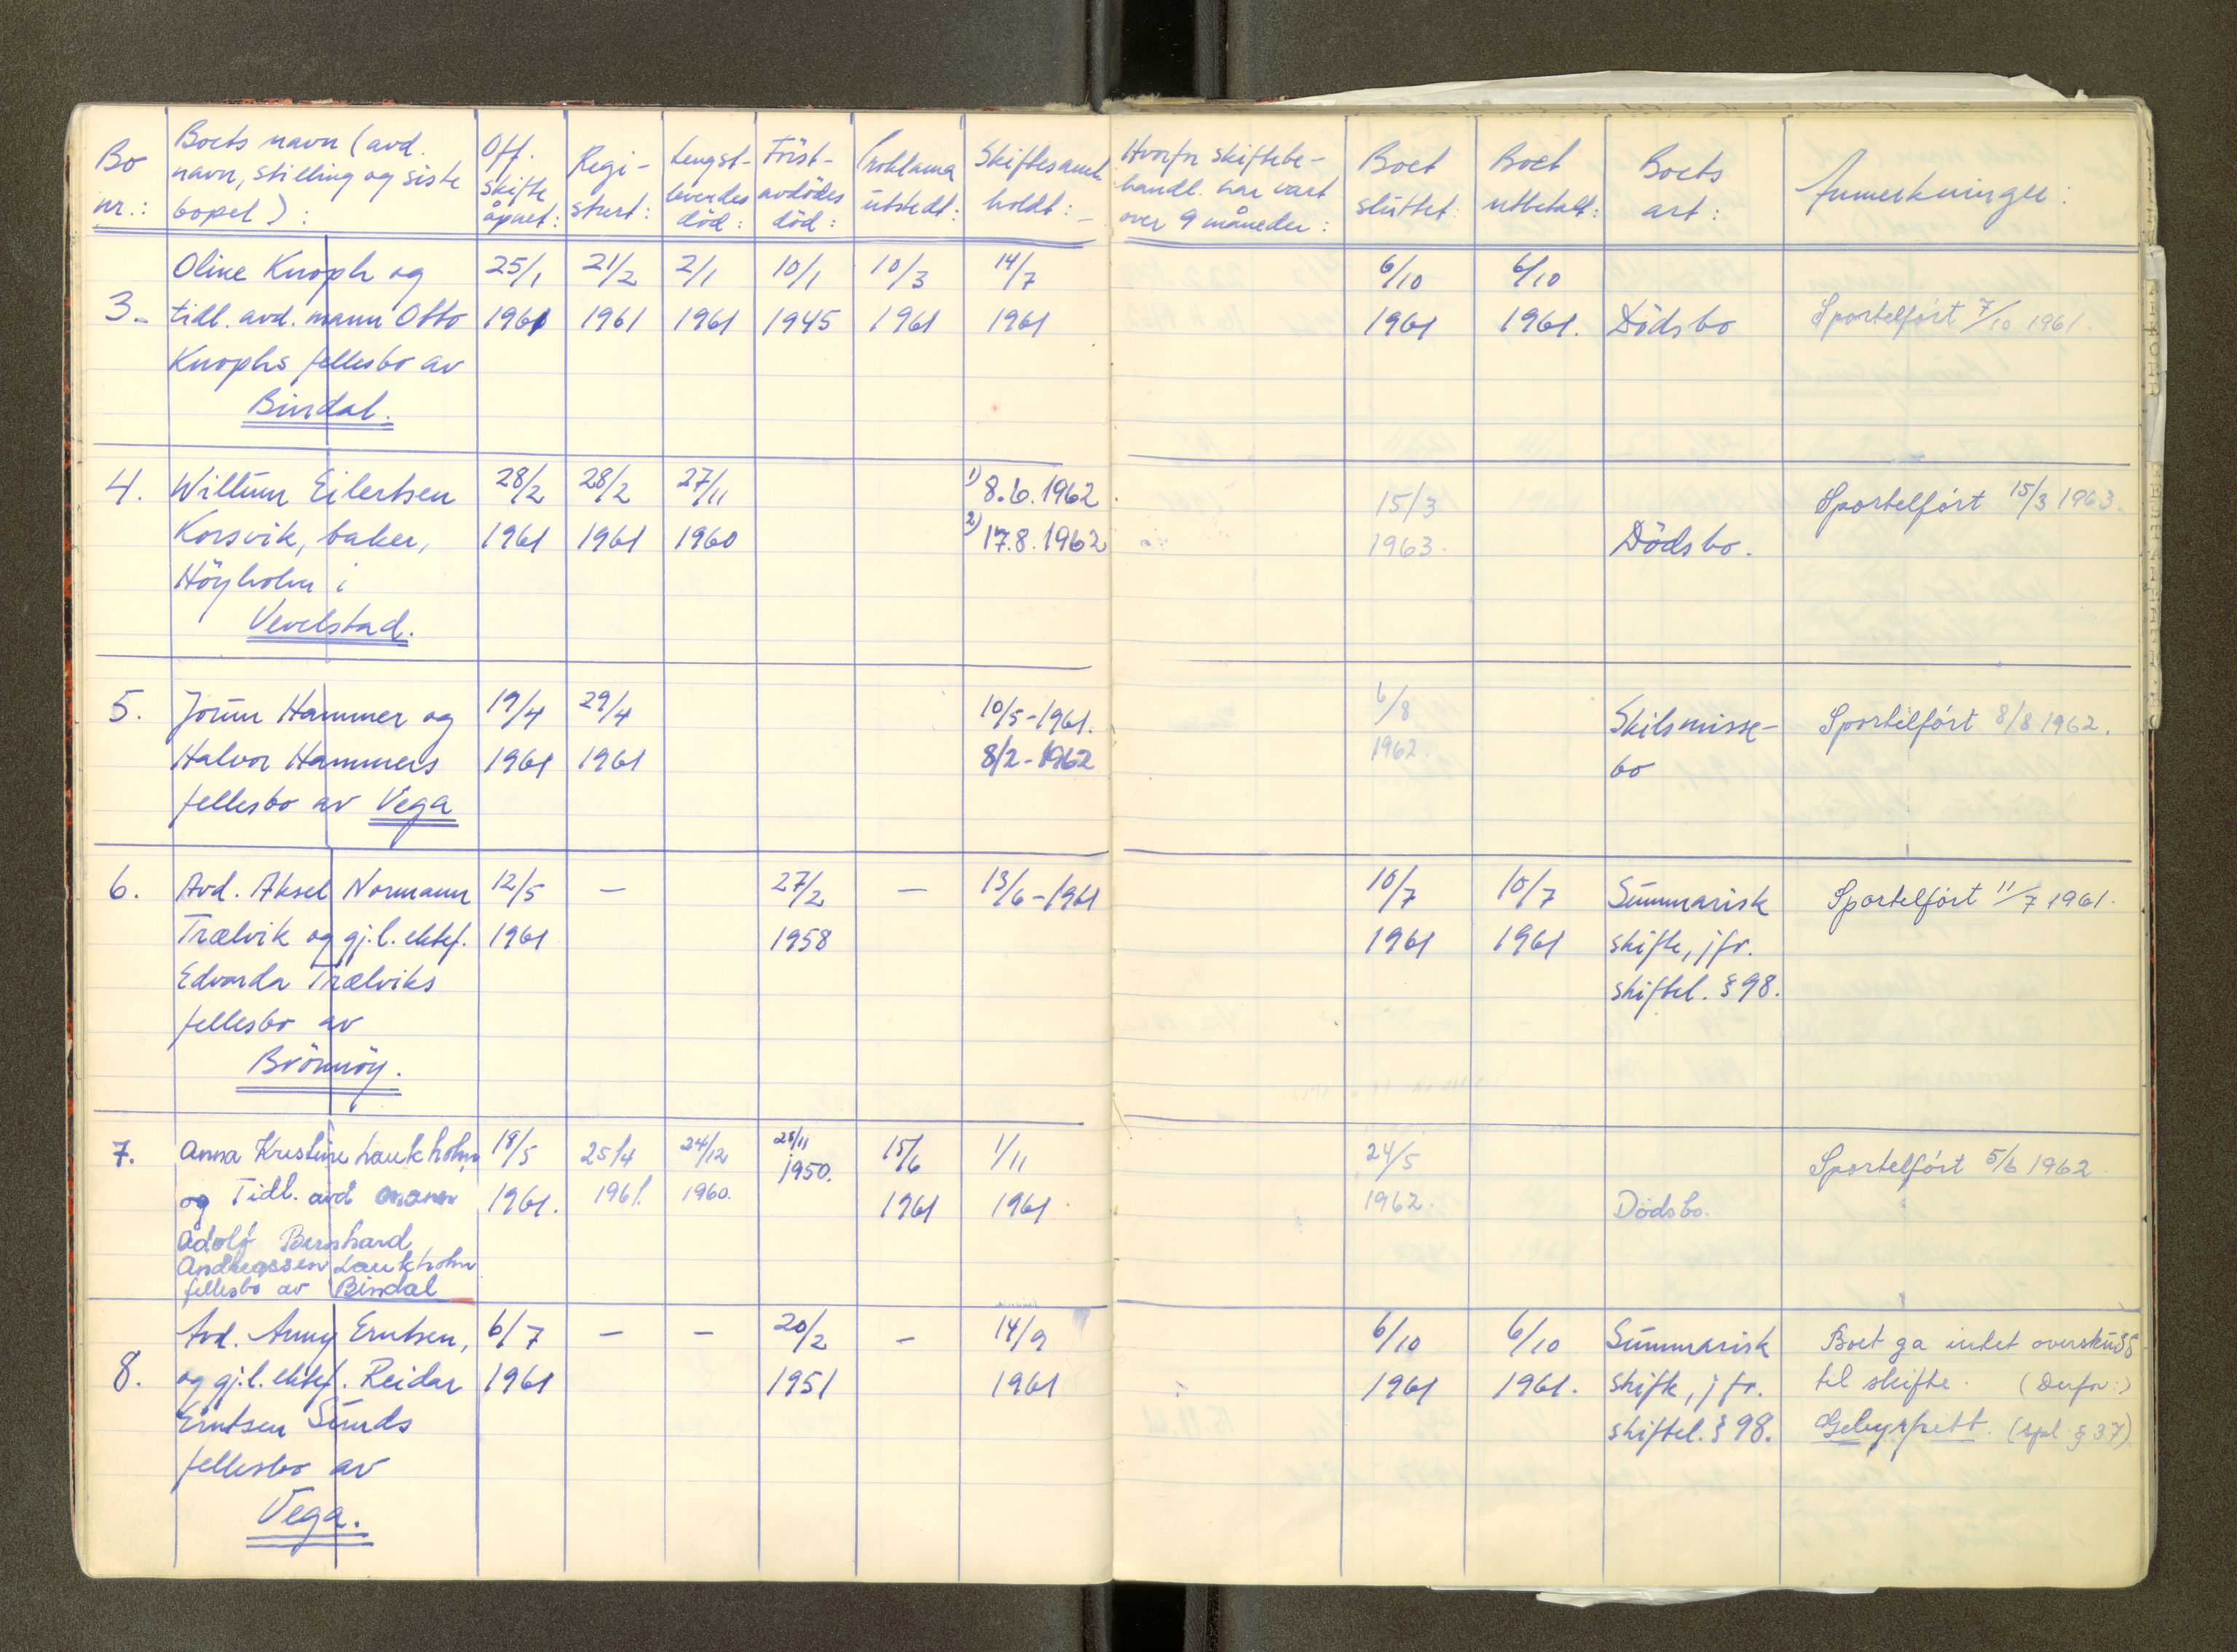 Bo nr.:
Boets navn (avd. navn, stilling og siste bopel):
Off. skifte åpnet:
Regi-strert:
Lengst-levendes död:
Först-avdödes död:
Proklama utstedt:
Skiftesaml. holdt:
Hvorfor skiftebe-handl. har vart over 9 måneder:
Boet sluttet:
Boet utbetalt:
Boets art:
Anmerkninger:
Oline Knoph og 25/1 21/2 2/1 10/1 10/3 14/7 6/10 6/10
3. tidl. avd. mann Otto 1961 1961 1961 1945 1961 1961 1961 1961. Dödsbo Sportelfört 7/10 1961.
Knophs fellesbo av
Bindal.
4. Willum Eilertsen 28/2 28/2 27/11 1) 8.6.1962 15/3 Sportelfört 15/3 1963.
Korsvik, baker, 1961 1961 1960 2) 17.8.1962 1963. Dödsbo.
Höyholm i
Vevelstad.
5. Jorun Hammer og 19/4 29/4 10/5-1961. 6/8 Skilsmisse- Sportelfört 8/8 1962.
Halvor Hammers 1961 1961 8/2-1962 1962. bo
fellesbo av Vega
6. Avd. Aksel Normann 12/5 — 27/2 — 13/6-1961 10/7 10/7 Summarisk Sportelfört 11/7 1961.
Trælvik og gj.l. ektef. 1961 1958 1961 1961 skifte, jfr.
Edvarda Trælviks skiftel. § 98.
fellesbo av
Brönnöy.
7. Anna Kristine Laukholm 18/5 25/4 24/12 28/11 15/6 1/11 24/5 Sportelfört 5/6 1962
og Tidl. avd mann 1961. 1961. 1960. 1950. 1961 1961 1962. Dödsbo.
Adolf Bernhard
Andreassen Laukholm
fellesbo av Bindal
Avd. Anny Erntsen, 6/7 — — 20/2 — 14/9 6/10 6/10 Summarisk Boet ga intet overskudd
8. og gj.l. ektef. Reidar 1961 1951 1961 1961 1961. skifte, jfr. til skifte. (Derfor:)
Erntsen Sunds skiftel. § 98. Gebyrfritt. (spl § 37)
fellesbo av
Vega.